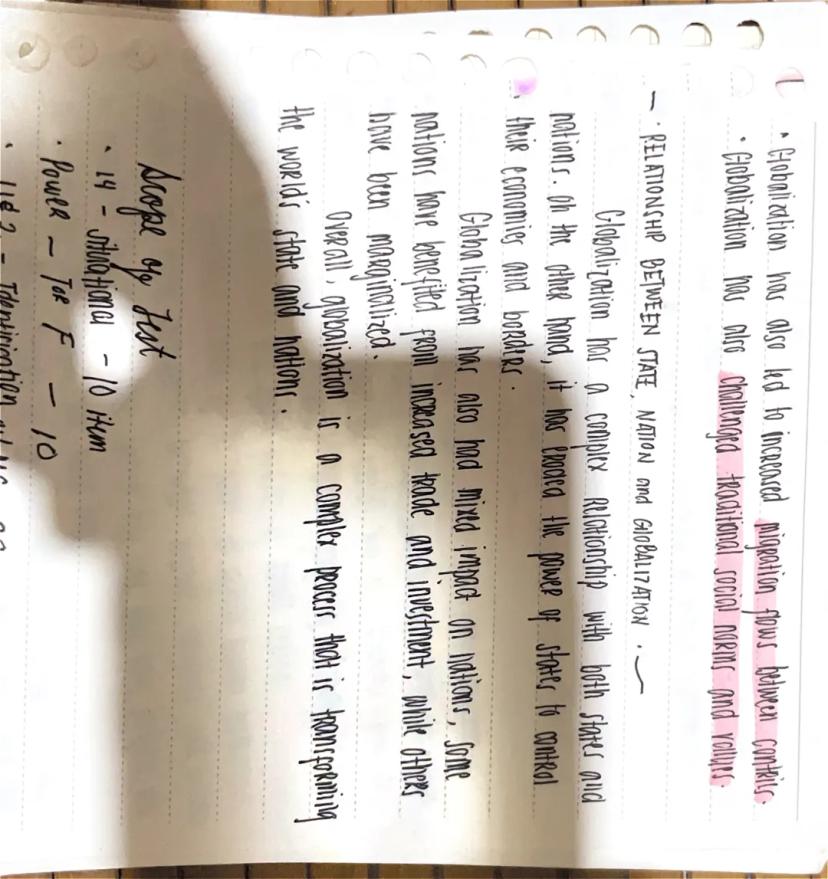 • Globalization has also led to increased migration flows between contries.
• Globalization has also challenged traditional social norms and values.
~ • RELATIONSHIP BETWEEN STATE, NATION and GLOBALIZATION • ~
Globalization has a complex relationship with both states and
nations. On the other hand, it has eroded the power of states to control
their economies and borders.
Globalization has also had mixed impact on nations, some
nations have benefited from increased trade and investment, while others
have been marginalized.
Overall, globalization is a complex process that is transforming
the world's state and nations.
Scope of Test
• 14 - situational - 10 item
• Power - T or F - 10
• 1 & 2 - Identification